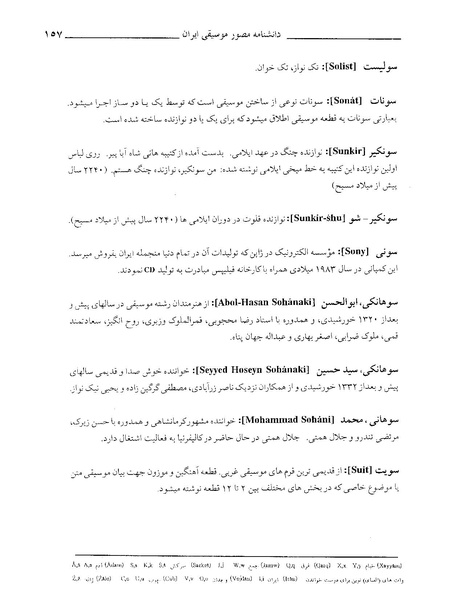 ۱۵۷ دانشنامه مصور موسیقی ایران
سولیست [Solist]: تک نواز، تک خوان.
سونات [Sonât]: سونات نوعی از ساختن موسیقی است که توسط یک یا دو ساز اجرا میشود.
بعبارتی سونات به قطعه موسیقی اطلاق میشود که برای یک یا دو نوازنده ساخته شده است.
سونکیر [Sunkir]: نوازنده چنگ در عهد ایلامی. بدست آمده از کتیبه هائی شاه آیا پیر. روی لباس
اولین نوازنده این کتیبه به خط میخی ایلامی نوشته شده: من سونکیر، نوازنده چنگ هستم. (۲۲۴۰ سال
پیش از میلاد مسیح)
سونکیر- شو [Sunkir-shu]: نوازنده فلوت در دوران ایلامی ها (۲۲۴۰ سال پیش از میلاد مسیح).
سونی [Sony]: مؤسسه الکترونیک در ژاپن که تولیدات آن در تمام دنیا منجمله ایران بفروش میرسد.
این کمپانی در سال ۱۹۸۳ میلادی همراه با کارخانه فیلیپس مبادرت به تولید CD نمودند.
سوهانکی، ابوالحسن [Abol-Hasan Sohânaki]: از هنرمندان رشته موسیقی در سالهای پیش و
بعداز ۱۳۲۰ خورشیدی، و همدوره با استاد رضا محجوبی، قمرالملوک وزیری، روح انگیز، سعادتمند
قمی، ملوک ضرابی، اصغر بهاری و عبداله جهان پناه.
سوهانکی، سید حسین [Seyyed Hoseyn Sohânaki]: خواننده خوش صدا و قدیمی سالهای
پیش و بعداز ۱۳۳۲ خورشیدی و از همکاران نزدیک ناصر زرآبادی، مصطفی گرگین زاده و یحیی نیک نواز.
سوهانی، محمد [Mohammad Sohâni]: خواننده مشهور کرمانشاهی و همدوره با حسن زیرک،
مرتضی تندرو و جلال همتی. جلال همتی در حال حاضر در کالیفرنیا به فعالیت اشتغال دارد.
سویت [Suit]: از قدیمی ترین فرم های موسیقی غربی. قطعه آهنگین و موزون جهت بیان موسیقی متن
یا موضوع خاصی که در بخش های مختلف بین ۲ تا ۱۲ قطعه نوشته میشود.